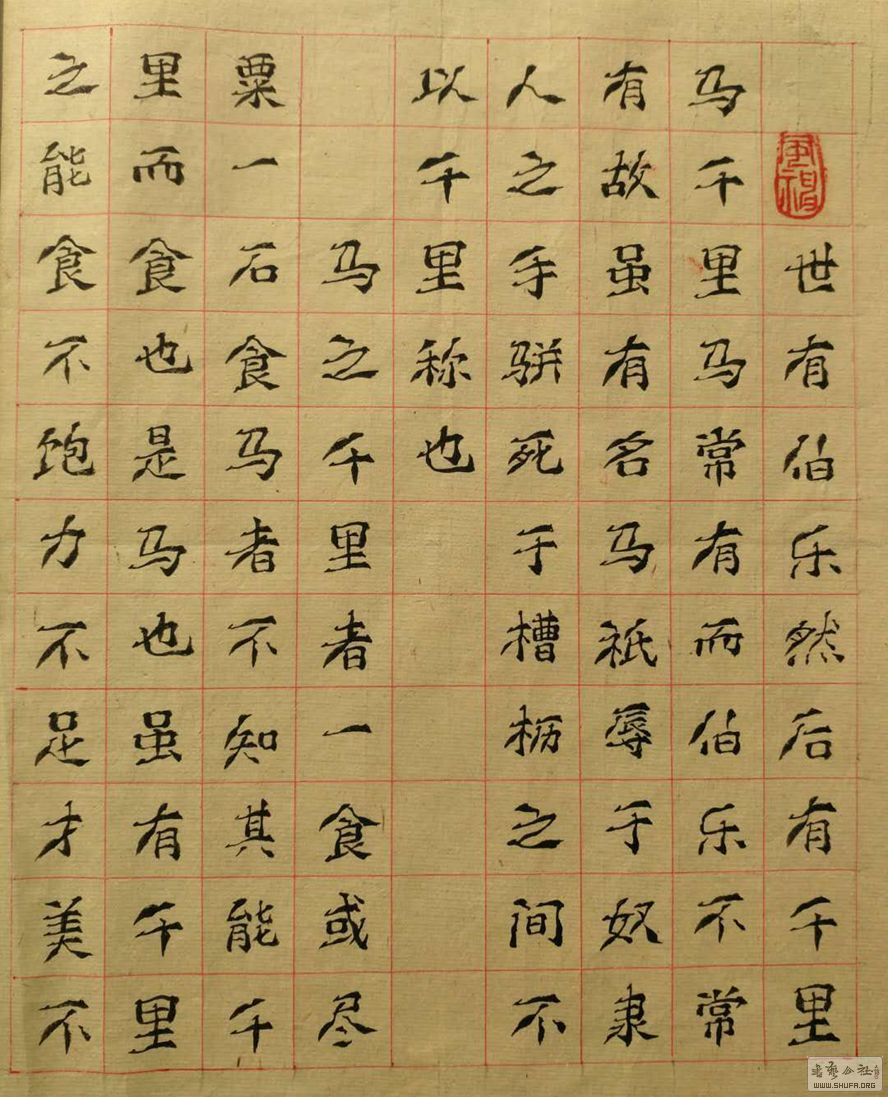 世有伯乐然后有千里
马千里马常有而伯乐不常
有故虽有名马祇辱于奴隶
人之手骈死于槽枥之间不
以千里称也
马之千里者一食或尽
粟一石食马者不知其能千
里而食也是马也虽有千里
之能食不饱力不足才美不
书艺公社
WWW.SHUFA.ORG